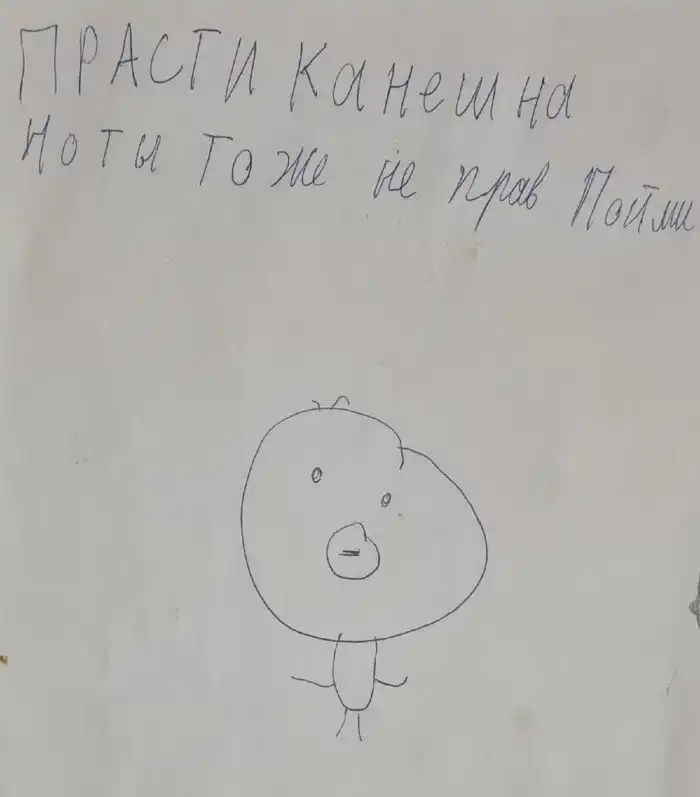 ПРАСТИ Канешна
Но ты тоже не прав Пойми